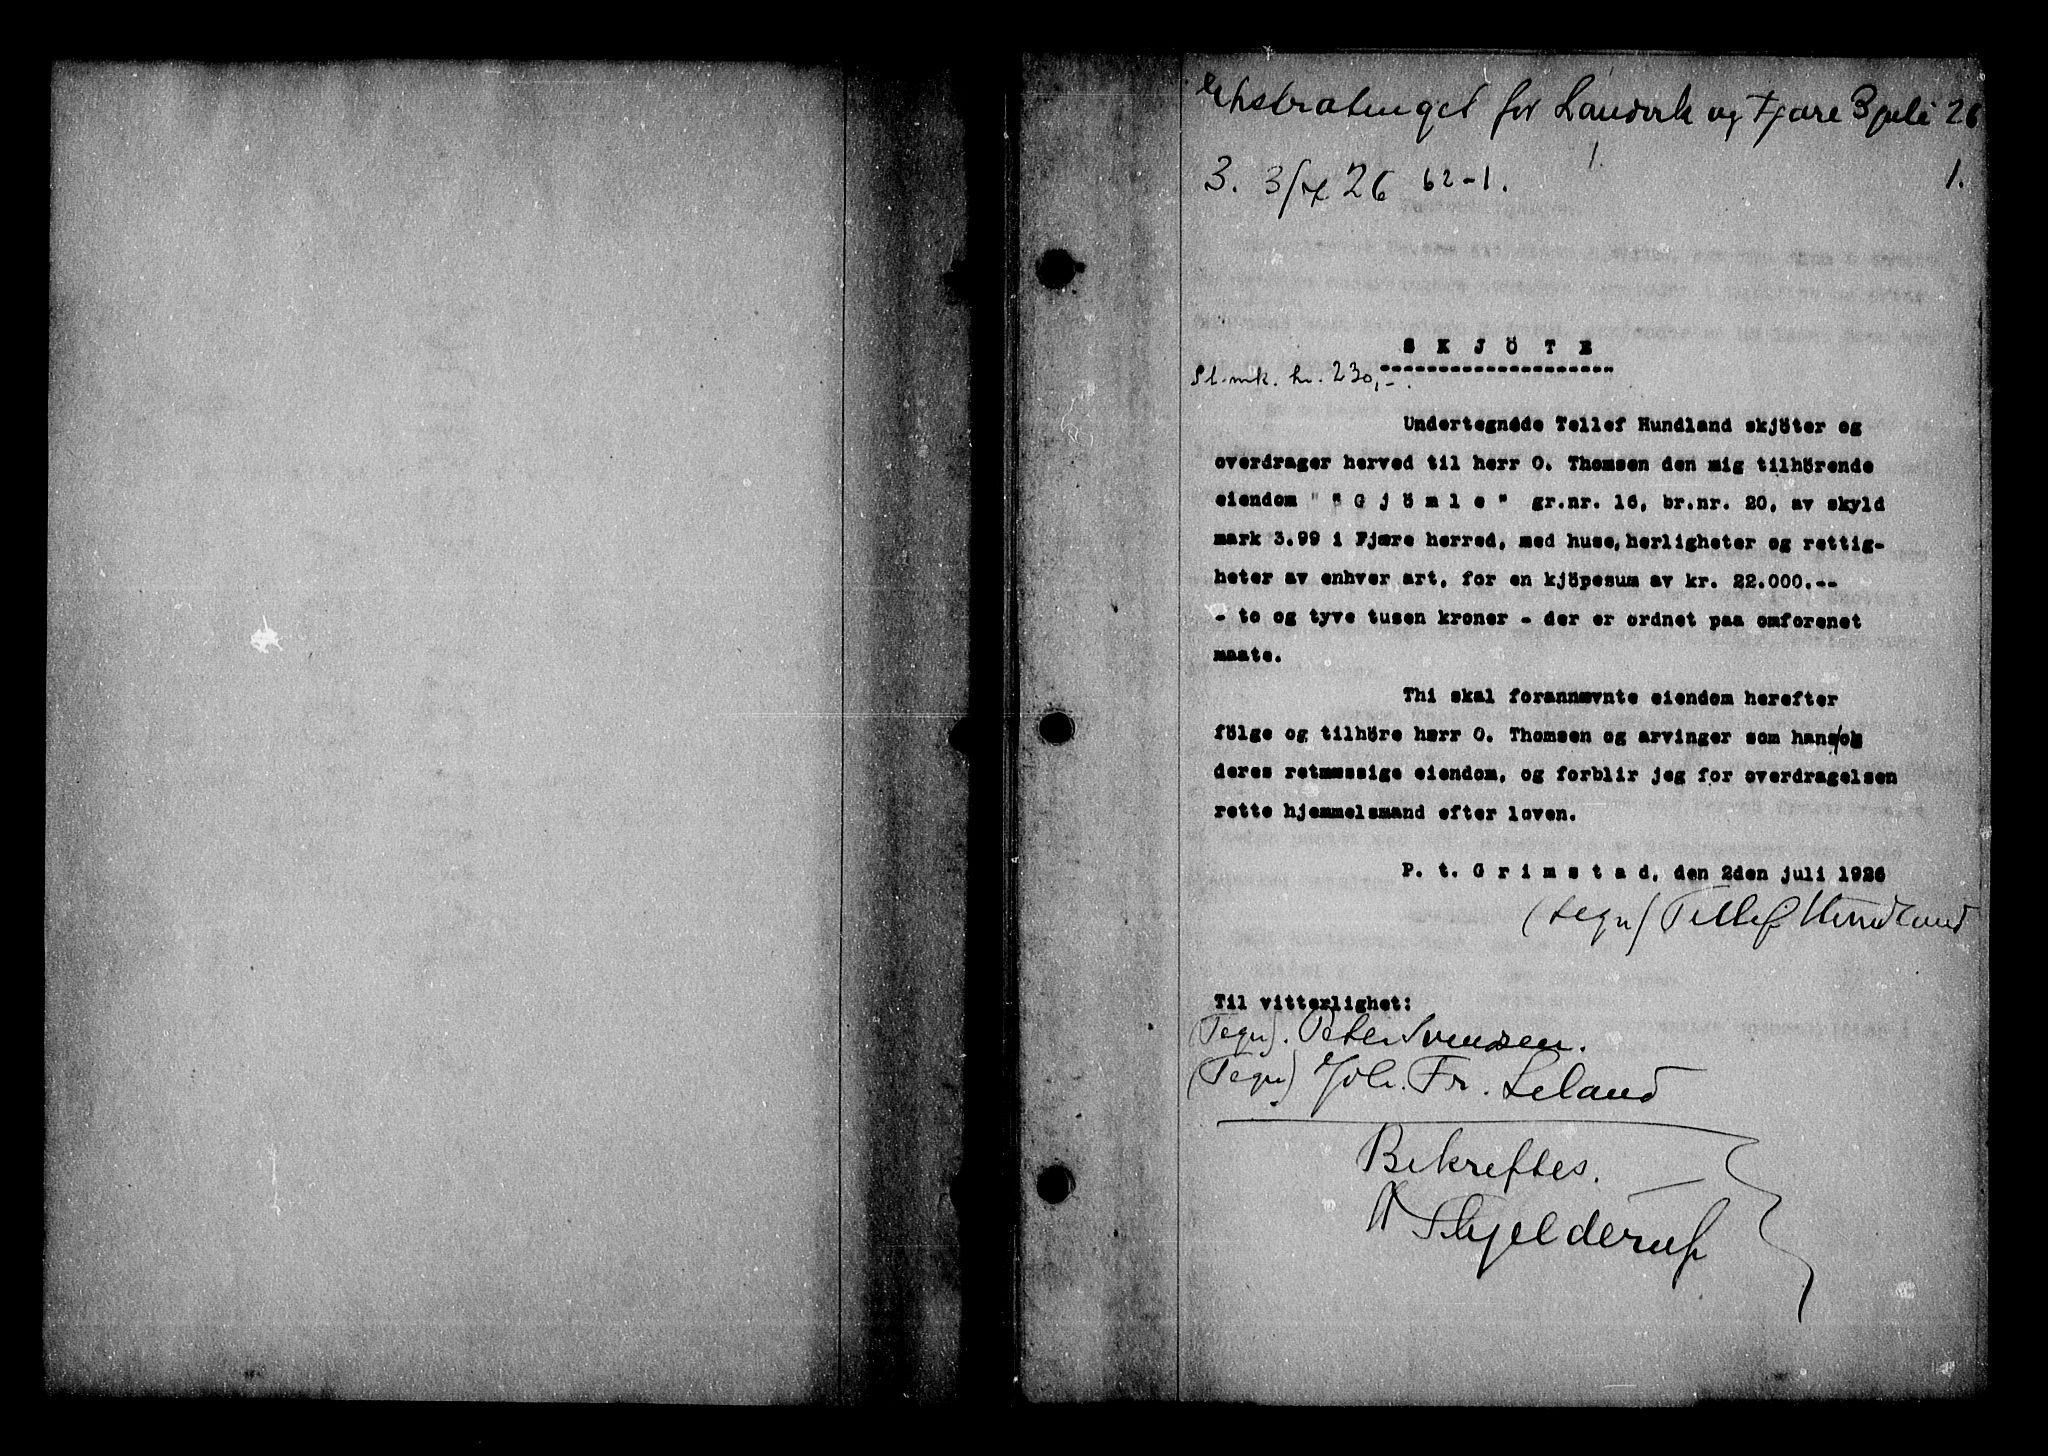 Ekstratinget for Landvik og Fjære 3 juli 26
3. 3/7 26 62-1. 1.
S K J Ö T E
St.mk. kr. 230,-.
Undertegnede Tellef Hundland skjöter og
overdrager herved til herr O. Thomsen den mig tilhörende
eiendom " "G j ö m l e" gr.nr. 16, br.nr. 20, av skyld
mark 3.99 i Fjære herred, med huse, herligheter og rettig-
heter av enhver art, for en kjöpesum av kr. 22.000.--
- to og tyve tusen kroner - der er ordnet paa omforenet
maate.
Thi skal forannævnte eiendom herefter
fölge og tilhöre herr O. Thomsen og arvinger som hans/og
deres retmæssige eiendom, og forblir jeg for overdragelsen
rette hjemmelsmand efter loven.
P. t. G r i m s t a d, den 2den juli 1926
(tegn) Tellef Hundland
Til vitterlighet:
(Tegn). Peter Svendsen.
(Tegn) Joh. Fr. Leland
Bekreftes.
Skjelderup